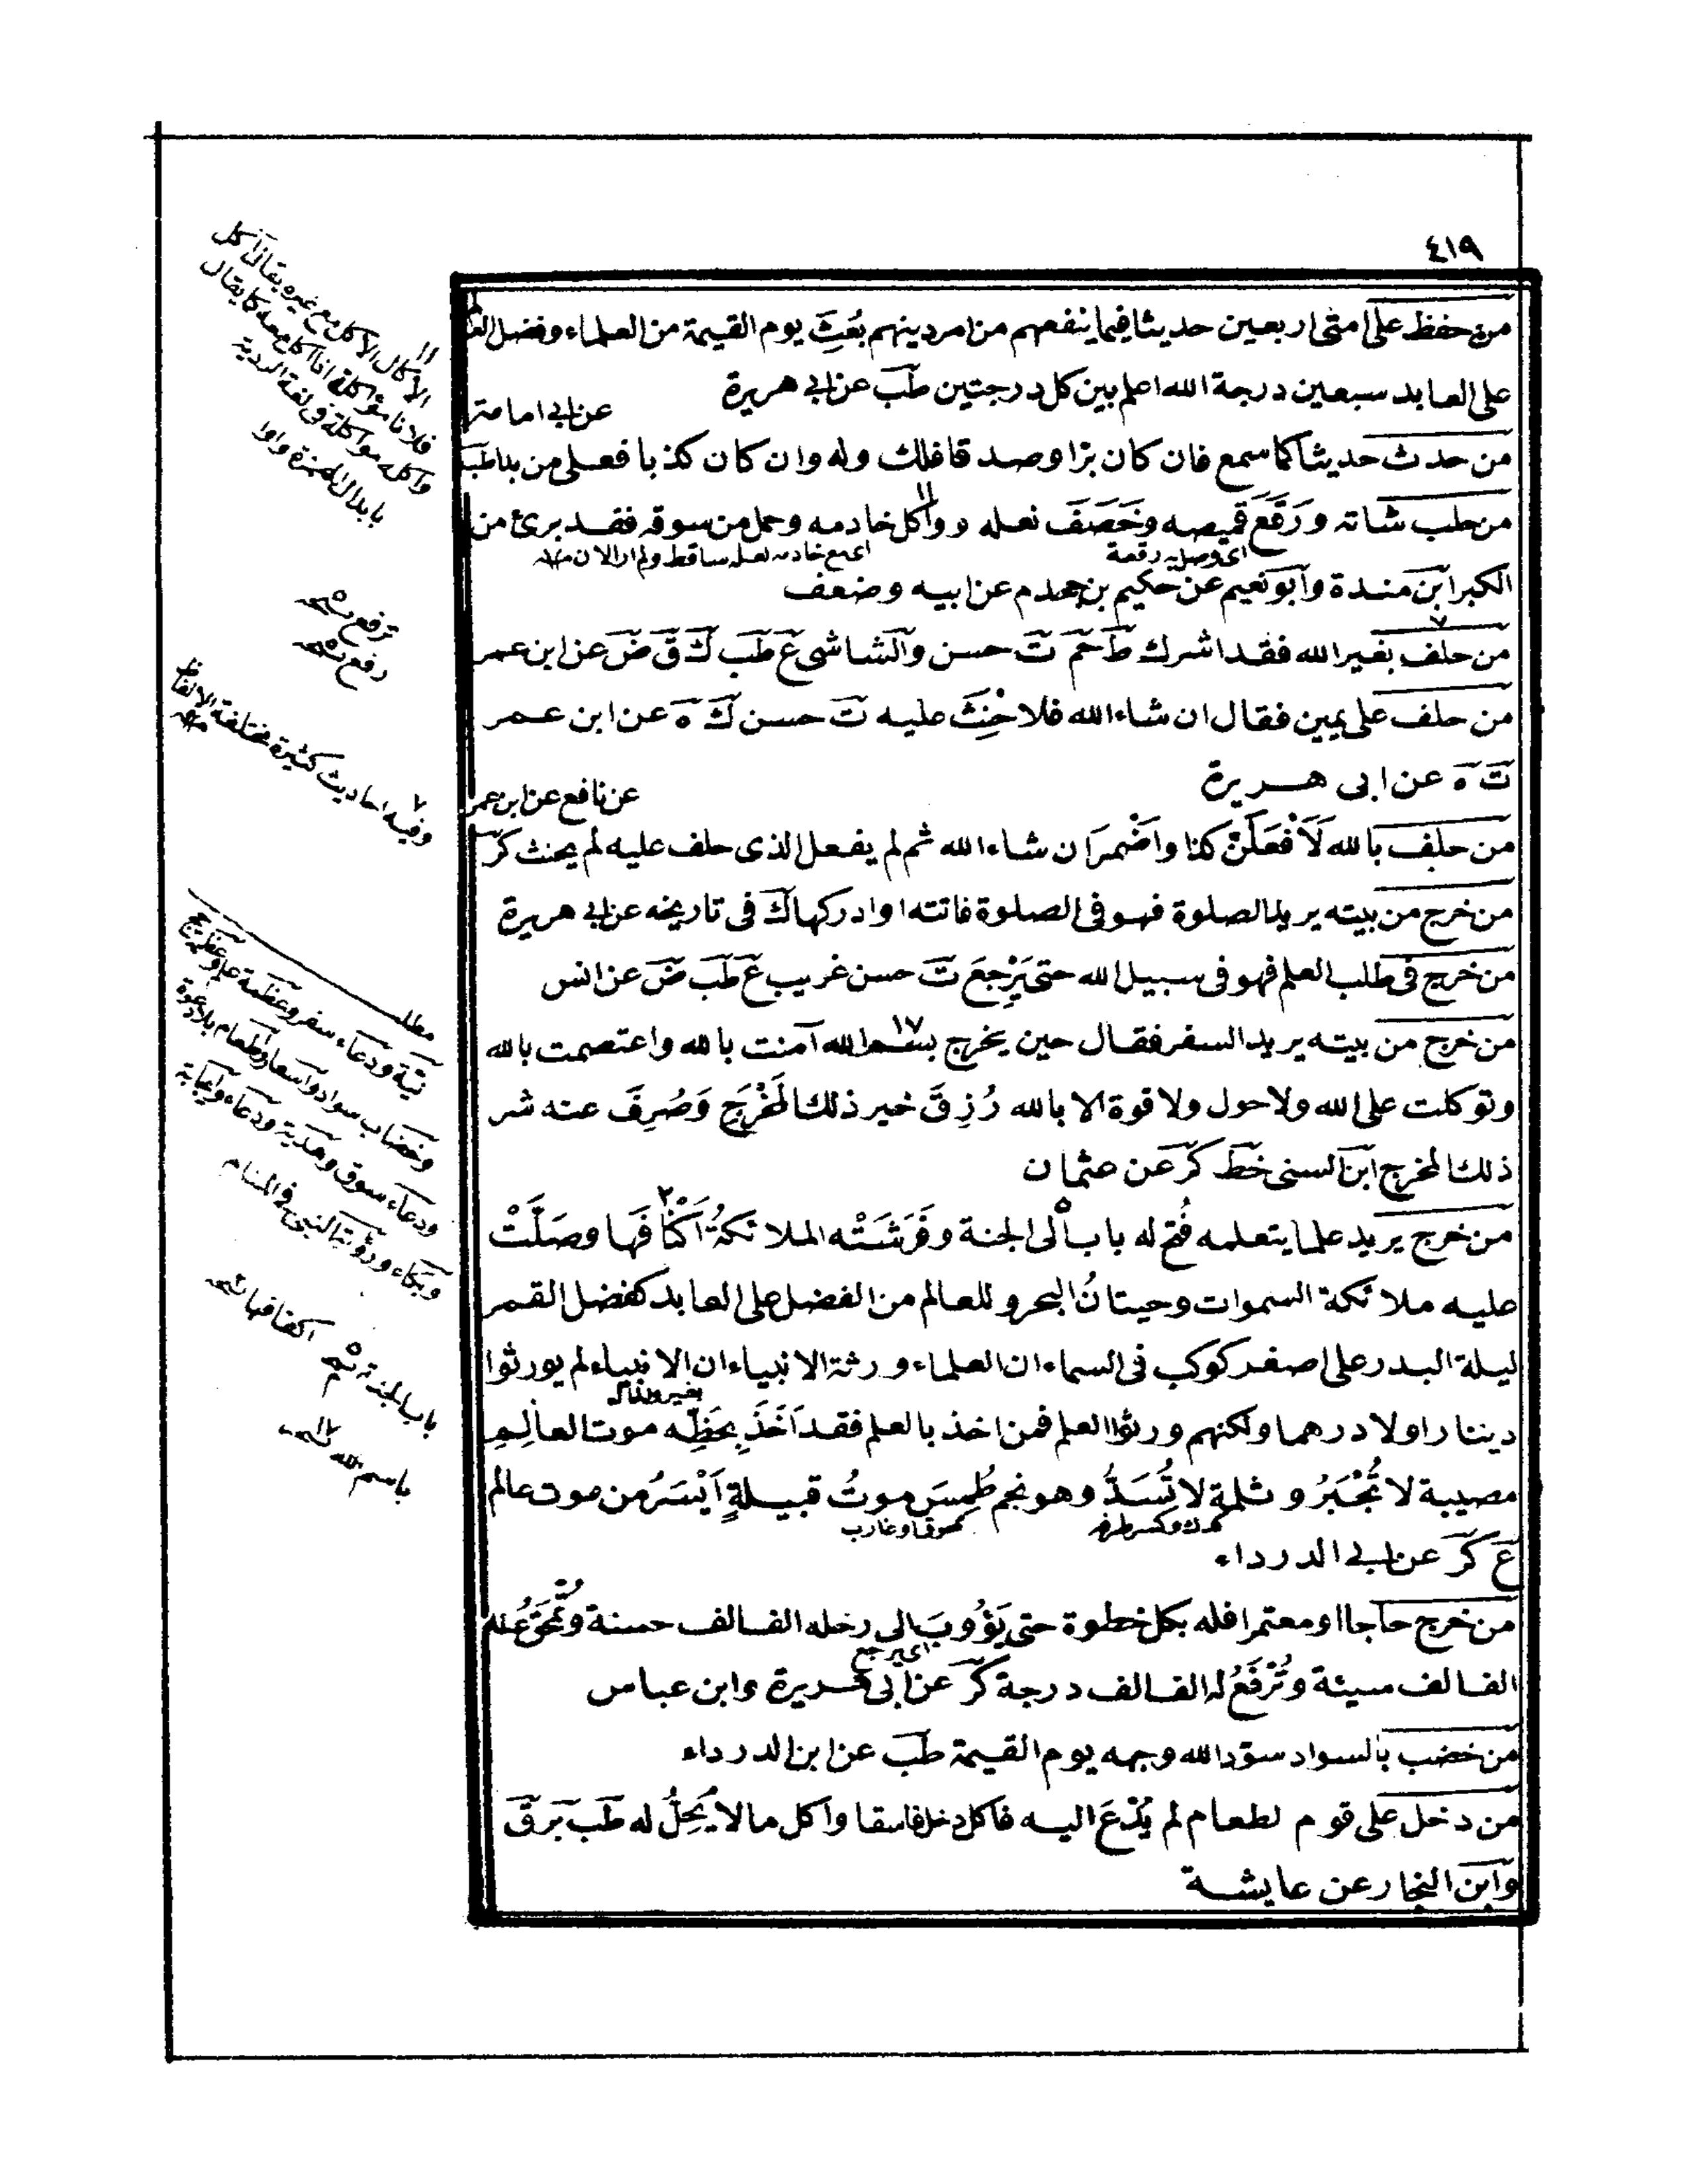 ٤١٩
من حفظ على امتى اربعين حديثا فيما ينفعهم من امر دينهم بُعِثَ يوم القيمة من العلماء وفضل العالم
على العابد سبعين درجة الله اعلم بين كل درجتين طب عن ابي هريرة
عن ابي امامة
من حدث حديثا كما سمع فان كان برّا وصدقا فلك وله وان كان كذبا فعلى من بدا طب
من حلب شاته ورَقَّعَ قميصه وخَصَفَ نعله وواكل خادمه وحمل من سوقه فقد برئ من
اى وصله رقعة
اى مع خادمه لعله ساقط ولم ار الان
الكبر ابن مندة وابو نعيم عن حكيم بن جحدم عن ابيه وضعف
من حلف بغير الله فقد اشرك ط حم ت حسن والشاشى ع طب ك ق ض عن ابن عمر
من حلف على يمين فقال ان شاء الله فلا حِنْثَ عليه ت حسن ك ه عن ابن عمر
ت ه عن ابى هريرة
عن نافع عن ابن عمر
من حلف بالله لَاَفْعَلَنَّ كذا واَضْمَرَ ان شاء الله ثم لم يفعل الذى حلف عليه لم يحنث كر
من خرج من بيته يريد الصلوة فهو فى الصلوة فاتته او ادركها ك فى تاريخه عن ابي هريرة
من خرج فى طلب العلم فهو فى سبيل الله حتى يَرْجِعَ ت حسن غريب ع طب ض عن انس
من خرج من بيته يريد السفر فقال حين يخرج بسم الله آمنت بالله واعتصمت بالله
وتوكلت على الله ولا حول ولا قوة الا بالله رُزِقَ خير ذلك المَخْرَجِ وَصُرِفَ عنه شر
ذلك المخرج ابن السنى خط كر عن عثمان
من خرج يريد علما يتعلمه فُتح له باب الى الجنة وفَرَشَتْه الملائكةُ اَكْنَافَها وصَلَّتْ
عليه ملائكة السموات وحيتانُ البحر وللعالم من الفضل على العابد كفضل القمر
ليلة البدر على اصغر كوكب فى السماء ان العلماء ورثة الانبياء ان الانبياء لم يورثوا
دينارا ولا درهما ولكنهم ورثوا العلم فمن اخذ بالعلم فقد اَخَذَ بِحَظِّه موت العالِمِ
مصيبة لا تُجْبَرُ وثلمة لا تُسَدُّ وهو نجم طُمِسَ موتُ قبيلةٍ اَيْسَرُ من موت عالم
ع كر عن ابي الدرداء
من خرج حاجا او معتمرا فله بكل خطوة حتى يَؤُوبَ الى رحله الف الف حسنة وتُمْحَى عنه
اى يرجع
الف الف سيئة وتُرْفَعُ له الف الف درجة كر عن ابى هريرة وابن عباس
من خضب بالسواد سوّد الله وجهه يوم القيمة طب عن ابن الدرداء
من دخل على قوم لطعام لم يُدْعَ اليه فاكل دخل فاسقا واكل ما لا يَحِلُّ له طب بر ق
وابن النجار عن عايشة
الاكال الاكل مع غيره يقال اَكل
فلانا مؤاكلة اذا اكل معه كما يقال
واكله مواكلة فى لغة الردية
بابدال الهمزة واوا
ترفع نسخه
رفع نسخه
وفيه احاديث كثيرة مختلفة الالفاظ
مطلب
نيّة ودعاء سفر وعظمة علم
وخضاب سواد واسعار وطعام بلا دعوة
ودعاء سوق وهدية ودعاء واجابة
وبكاء ورؤية النبى فى المنام
اكنافها نسخه
باب الجنة نسخه
باسم الله نسخه